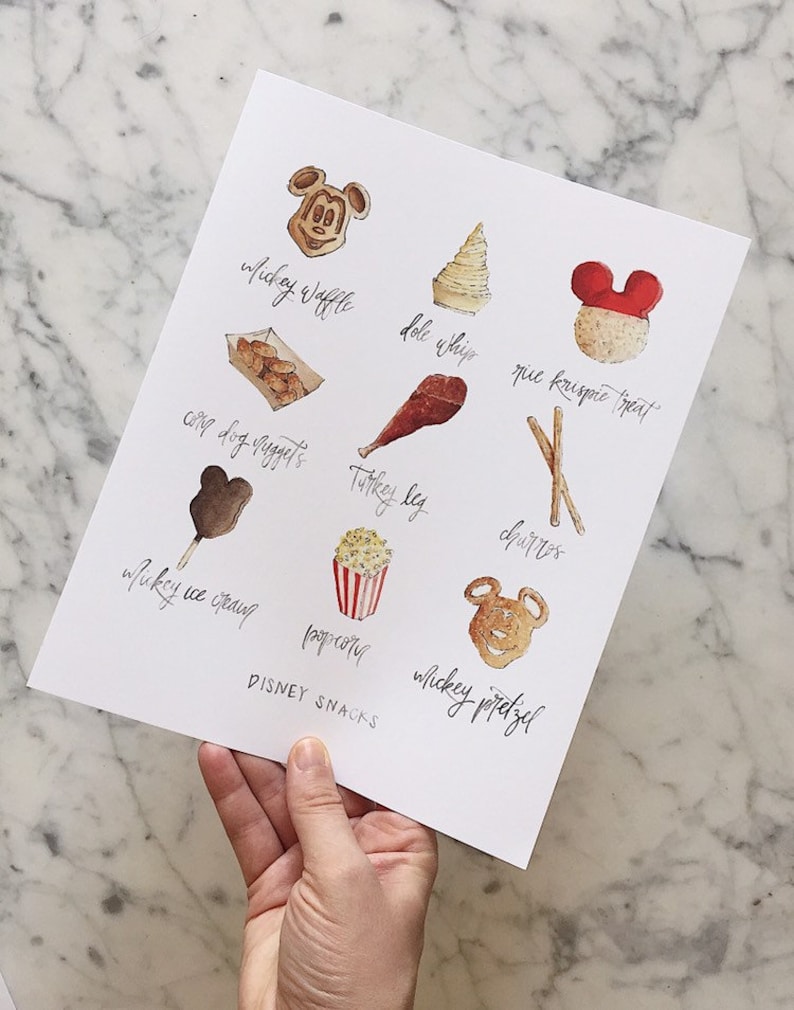 Mickey Waffle
dole whip
rice krispie treat
corn dog nuggets
Turkey leg
churros
Mickey ice cream
popcorn
Mickey pretzel
DISNEY SNACKS